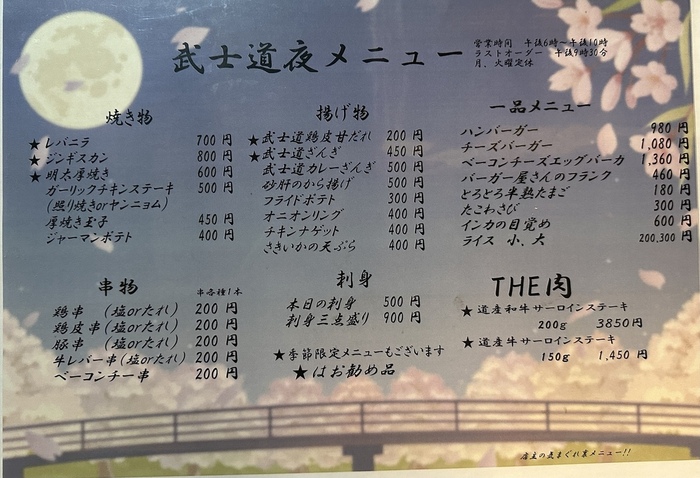 武士道夜メニュー
営業時間 午後6時～午後10時
ラストオーダー 午後9時30分
月、火曜定休
焼き物
★レバニラ 700 円
★ジンギスカン 800 円
★明太厚焼き 600 円
ガーリックチキンステーキ 500 円
(照り焼きorヤンニョム)
厚焼き玉子 450 円
ジャーマンポテト 400 円
揚げ物
★武士道鶏皮甘だれ 200 円
★武士道ざんぎ 450 円
武士道カレーざんぎ 500 円
砂肝のから揚げ 500 円
フライドポテト 300 円
オニオンリング 400 円
チキンナゲット 400 円
さきいかの天ぷら 400 円
一品メニュー
ハンバーガー 980 円
チーズバーガー 1,080 円
ベーコンチーズエッグバーガ 1,360 円
バーガー屋さんのフランク 460 円
とろとろ半熟たまご 180 円
たこわさび 300 円
インカの目覚め 600 円
ライス 小、大 200,300 円
串物 串各種1本
鶏串 (塩orたれ) 200 円
鶏皮串(塩orたれ) 200 円
豚串 (塩orたれ) 200 円
牛レバー串(塩orたれ) 200 円
ベーコンチー串 200 円
刺身
本日の刺身 500 円
刺身三点盛り 900 円
★季節限定メニューもございます
★はお勧め品
THE肉
★道産和牛サーロインステーキ
200g 3850円
★道産牛サーロインステーキ
150g 1,450 円
店主の気まぐれ裏メニュー!!